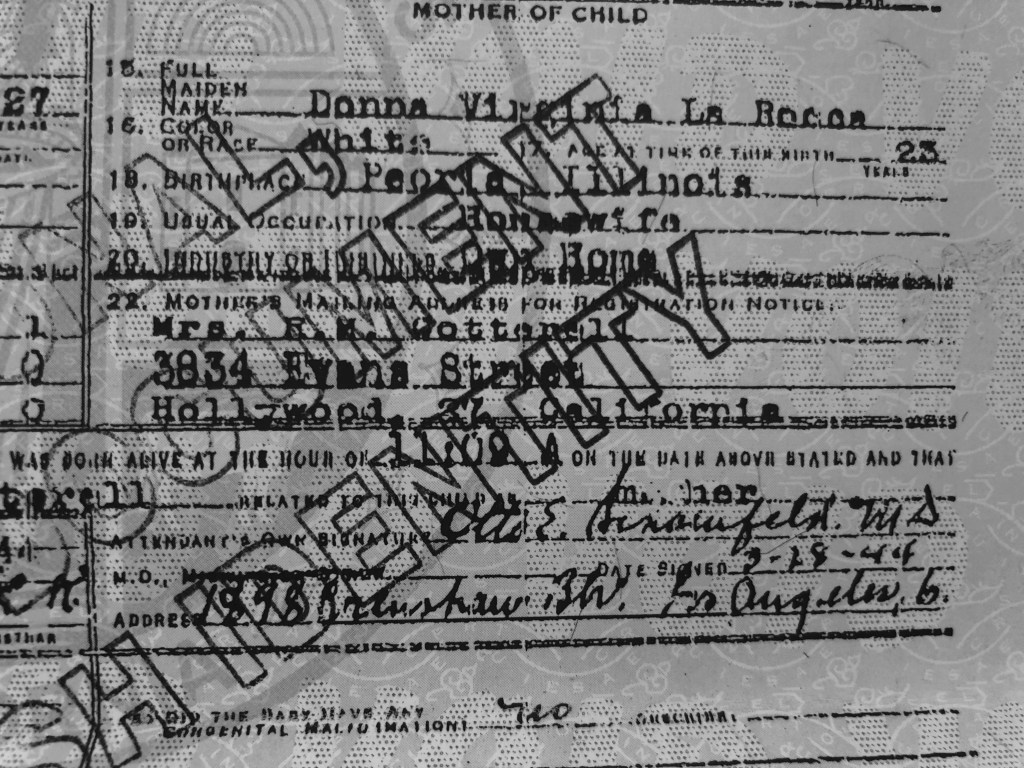 MOTHER OF CHILD
15. FULL
MAIDEN
NAME Donna Virginia La Rocca
27
YEARS
16. COLOR
OR RACE White 17. AGE AT TIME OF THIS BIRTH 23
YEARS
18. BIRTHPLACE Peoria, Illinois
19. USUAL OCCUPATION Housewife
20. INDUSTRY OR BUSINESS Own Home
22. MOTHER'S MAILING ADDRESS FOR REGISTRATION NOTICE:
1 Mrs. R.M. Cotterell
0 3834 Evans Street
0 Hollywood, 27, California
WAS BORN ALIVE AT THE HOUR OF 11:09 A ON THE DATE ABOVE STATED AND THAT
terell RELATED TO THIS CHILD AS mother
ATTENDANT'S OWN SIGNATURE M D
M.D., DATE SIGNED 44
ADDRESS Crenshaw Blv. Los Angeles, 6.
DID THE BABY HAVE ANY
CONGENITAL MALFORMATION? no
DOCUMENT
SH IDENTITY